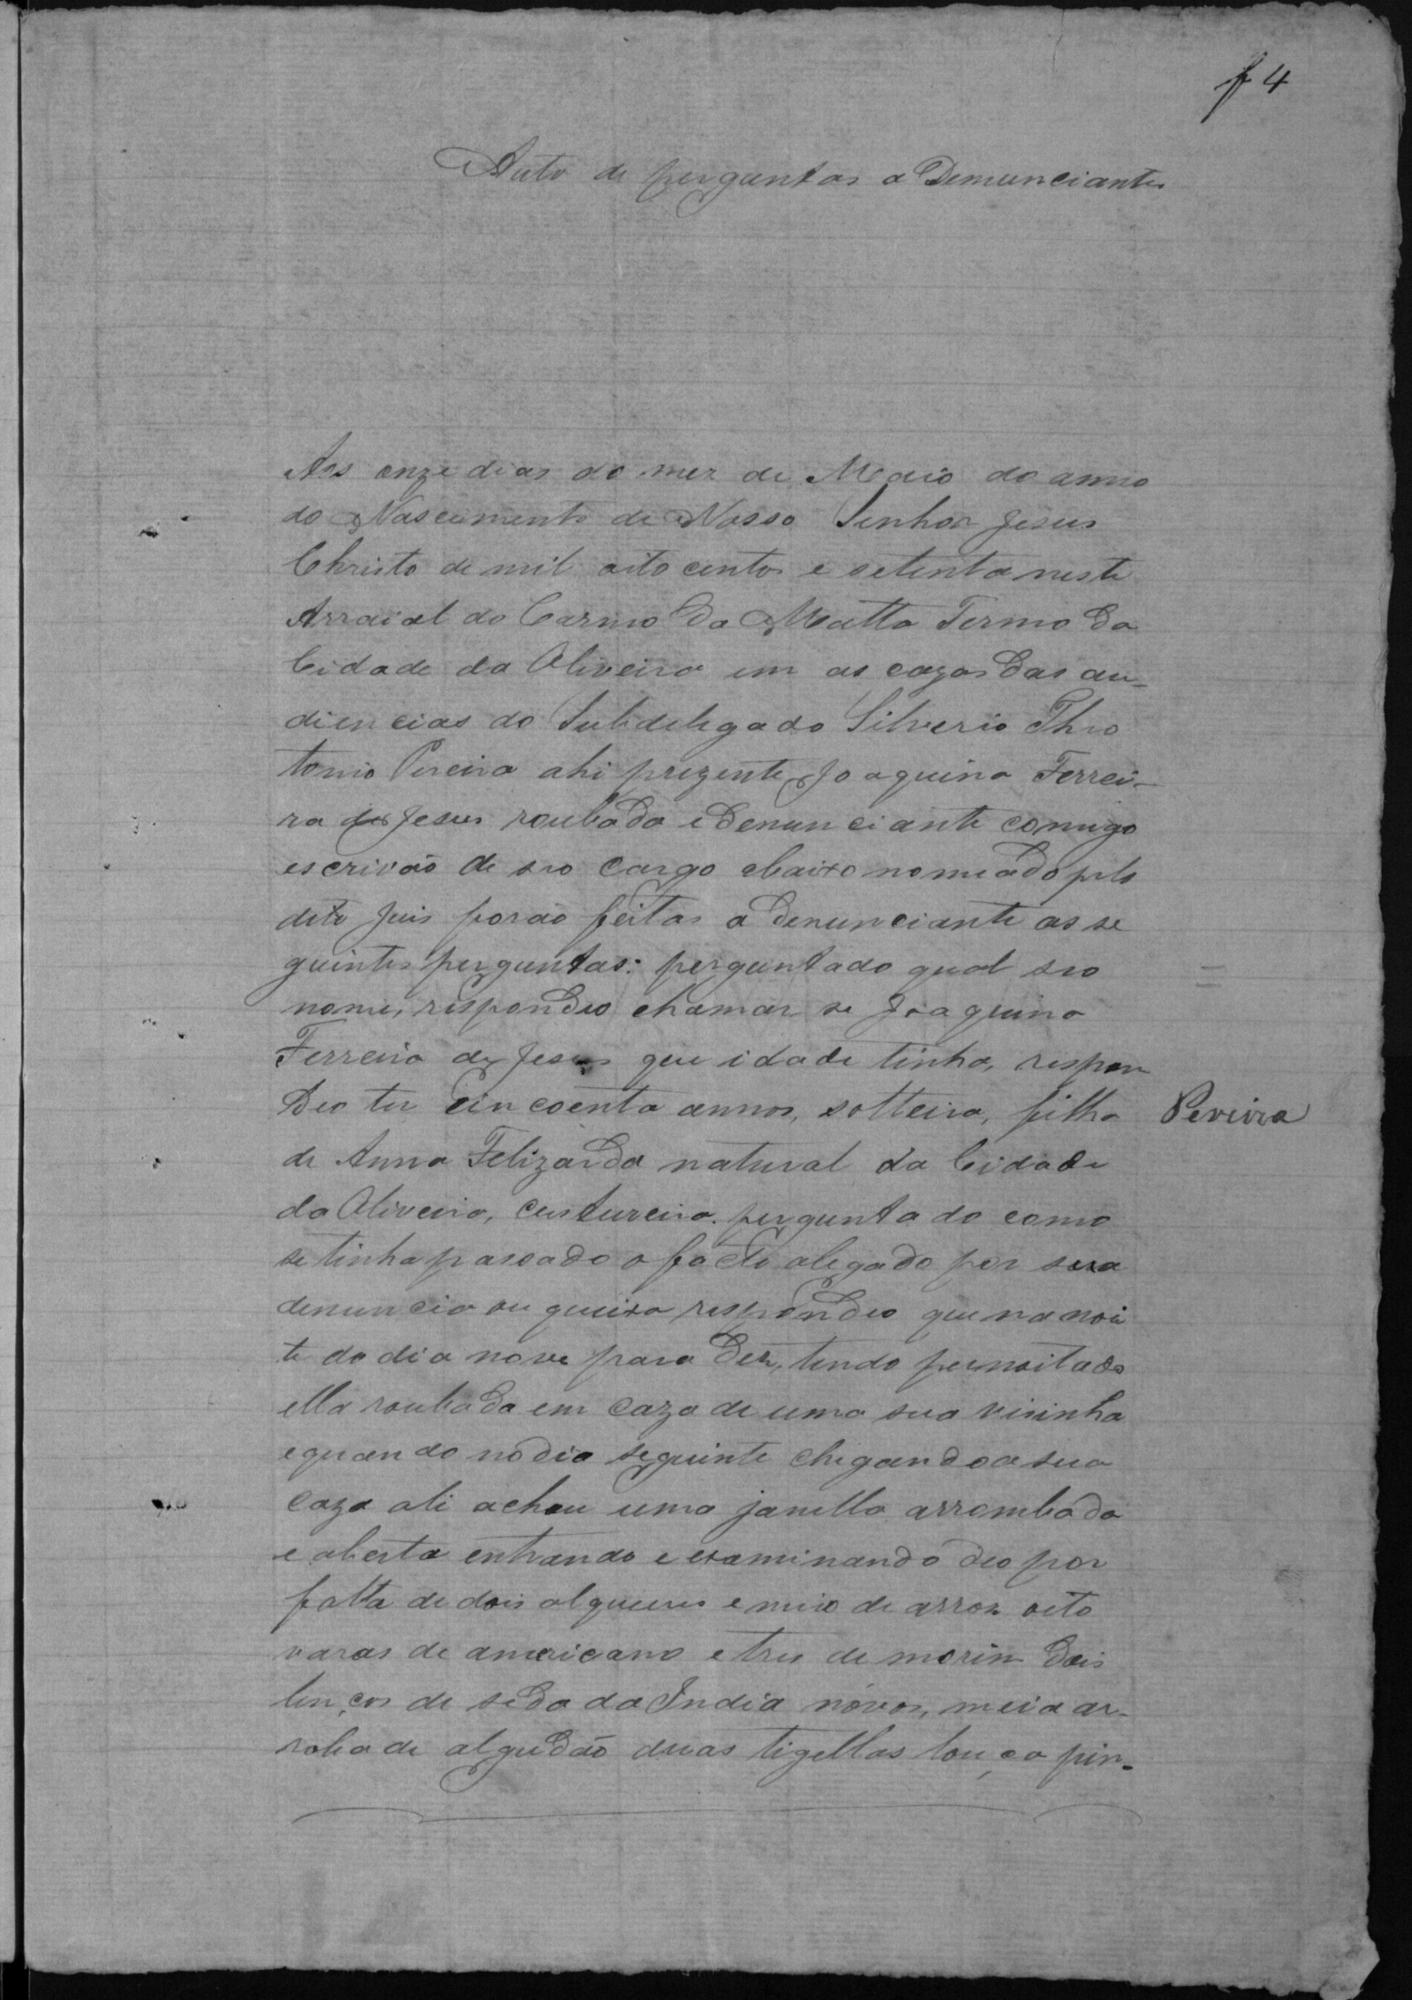 f 4
Auto de perguntas a Denunciante
Aos onze dias do mez de Maio do anno
do Nascimento de Nosso Senhor Jesus
Christo de mil oito centos e setenta neste
Arraial do Carmo da Matta Termo da
Cidade da Oliveira em as cazas das au-
diencias do Subdelegado Silverio Theo
tonio Pereira ahi prezente Joaquina Ferrei-
ra de Jesus roubada e denunciante comigo
escrivão de seo cargo abaixo nomeado pelo
dito Juis forão feitas a denunciante as se
guintes perguntas: perguntado qual seo
nome, respondeo chamar se Joaquina
Ferreira de Jesus que idade tinha, respon
deo ter cincoenta annos, solteira, filha
Pereira
de Anna Felizarda natural da Cidade
da Oliveira, custureira. perguntado como
se tinha passado o facto alegado por sua
denuncia ou queixa respondeo que na noi
te do dia nove para dez, tendo pernoitado
ella roubada em caza de uma sua visinha
e quando no dia seguinte chegando a sua
caza ali achou uma janella arrombada
e aberta entrando e examinando deo por
falta de dois alqueires e meio de arroz oito
varas de americano e tres de morim dois
lenços de seda da India novos, meia ar-
roba de algudão duas tigellas louça pin-